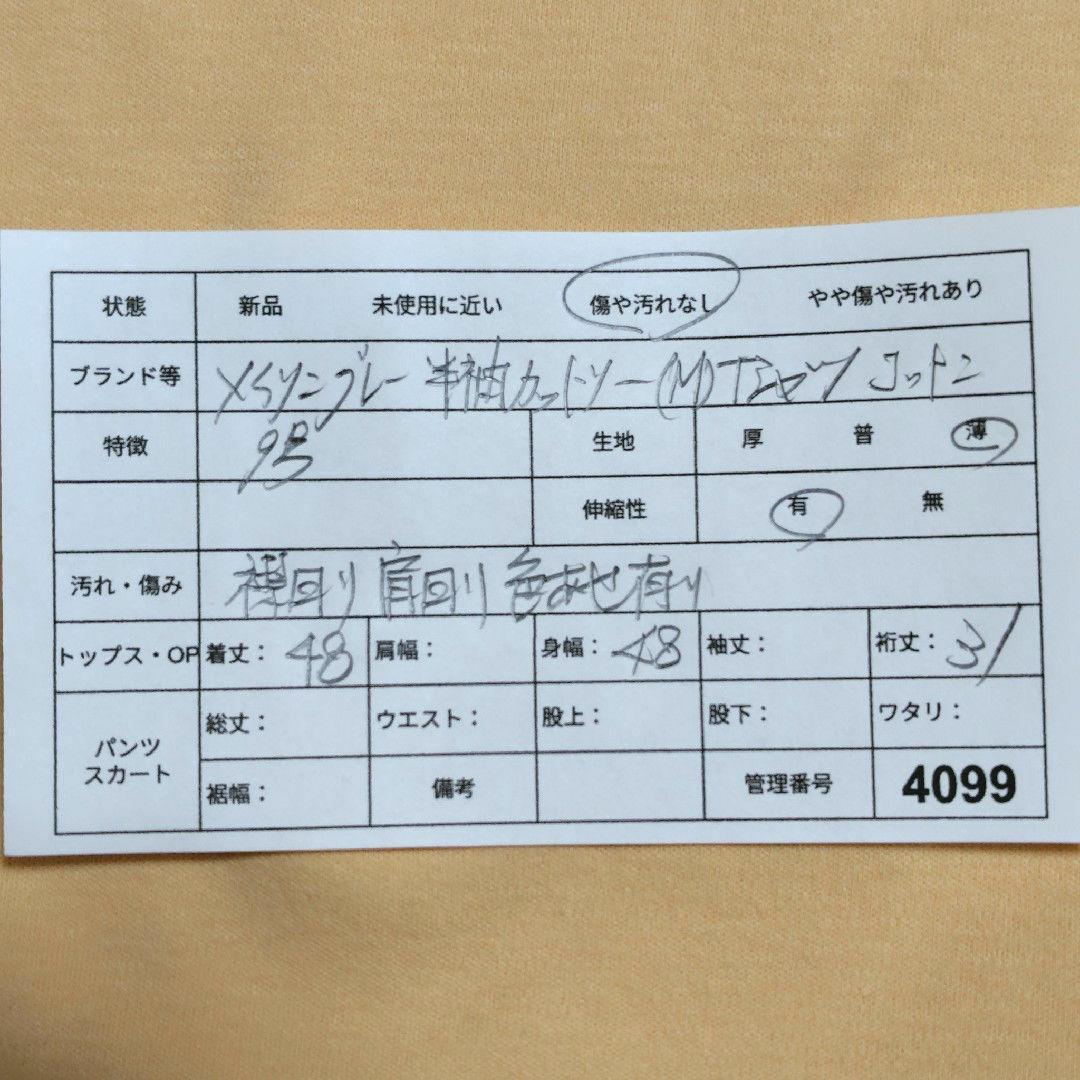 状態 新品 未使用に近い 傷や汚れなし やや傷や汚れあり
ブランド等 半袖カットソー(M)Tシャツ コットン
特徴 生地 厚 普 薄
伸縮性 有 無
汚れ・傷み 襟回り 肩回り 色あせ有り
トップス・OP 着丈: 48 肩幅: 身幅: 48 袖丈: 裄丈: 31
パンツ 総丈: ウエスト: 股上: 股下: ワタリ:
スカート 裾幅: 備考 管理番号 4099